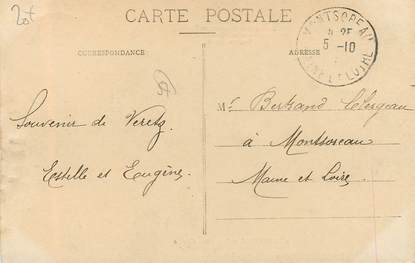 CARTE POSTALE
CORRESPONDANCE
ADRESSE
MONTSOREAU
5-10
MAINE ET LOIRE
Souvenir de Veretz.
Estelle et Eugène.
Mr Bertrand Clergeau
à Montsoreau
Maine et Loire